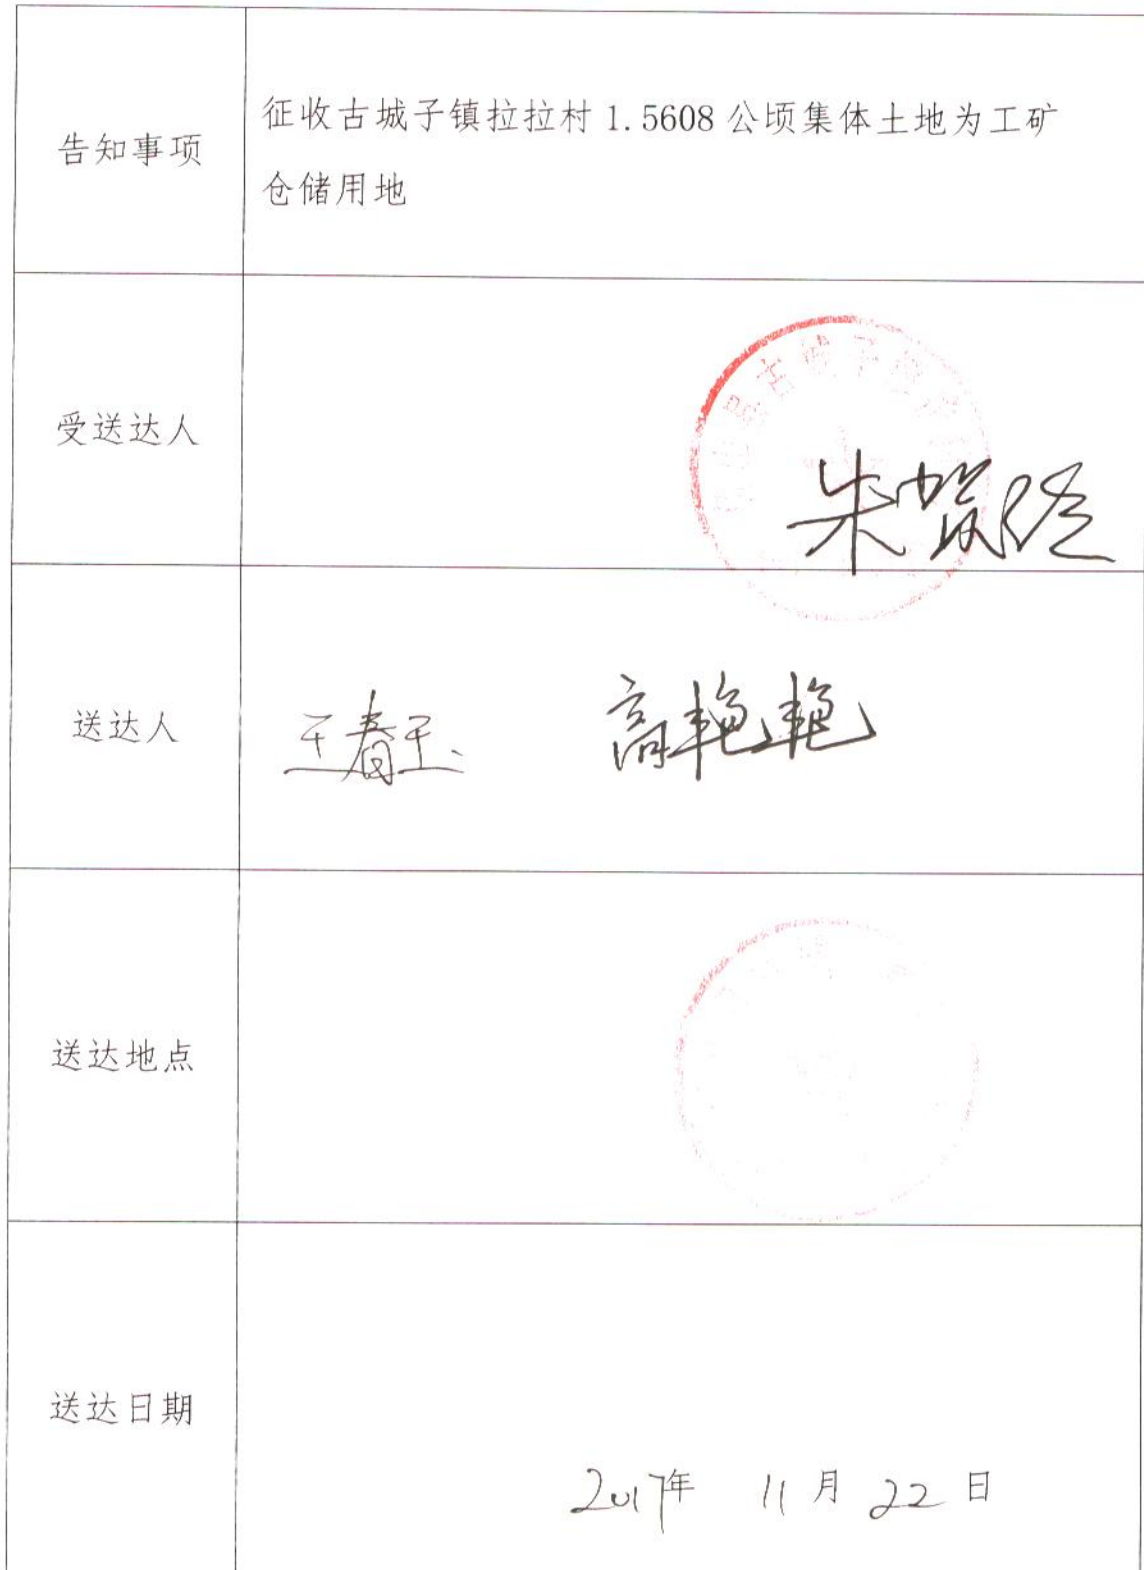 告知事项
征收古城子镇拉拉村 1.5608 公顷集体土地为工矿
仓储用地
受送达人
古城子镇
送达人
王春玉 高艳艳
送达地点
送达日期
2017年 11 月 22 日